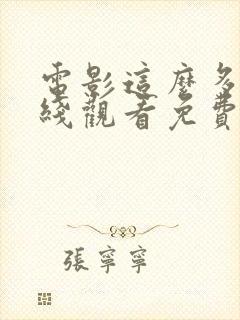 電影這麼多
綫觀看免費
張寧寧